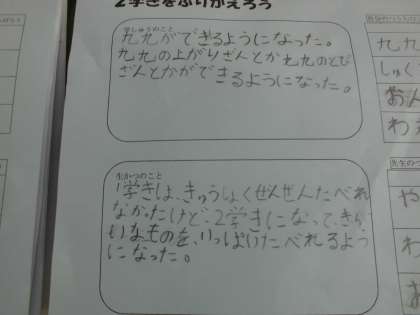 2学きをふりかえろう
がくしゅうのこと
九九ができるようになった。
九九の上がりざんとか九九のとび
ざんとかができるようになった。
生かつのこと
1学きは、きゅうしょくぜんぜんたべれ
なかったけど、2学きになって、きら
いなものを、いっぱいたべれるよう
になった。
九九
しゅく
おん
わ
先生の
や
わ